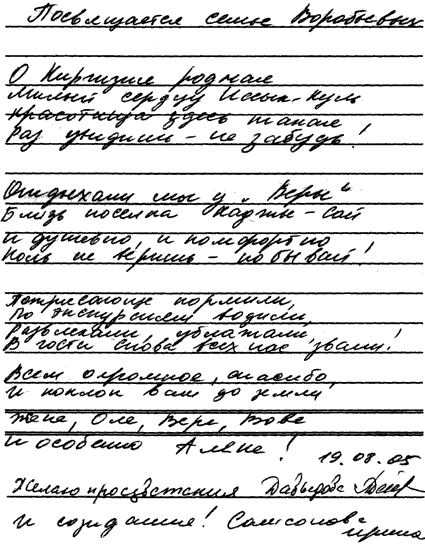 Посвящается семье Воробьевых
О Киргизия родная
Милый сердцу Иссык-Куль
Красотища здесь такая
Раз увидишь - не забудь!
Отдыхали мы у "Веры"
Близь поселка Каджы-Сай
И душевно, и комфортно
Коль не веришь - побывай!
Потрясающе кормили,
По экскурсиям водили,
Развлекали, ублажали,
В гости снова всех нас звали!
Всем огромное, спасибо,
И поклон вам до земли
Жене, Оле, Вере, Вове
И особенно Алёне!
19.08.05
Желаю процветания Давыдова
и созидания! Самсонова
Ирина